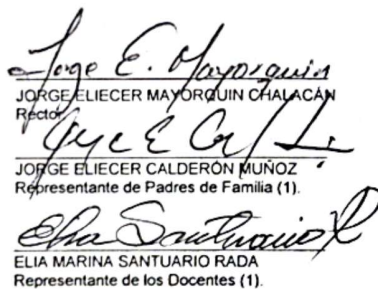 Jorge E. Mayorquin
JORGE ELIECER MAYORQUIN CHALACÁN
Rector
JORGE ELIECER CALDERÓN MUÑOZ
Representante de Padres de Familia (1).
Elia Santuario R
ELIA MARINA SANTUARIO RADA
Representante de los Docentes (1).